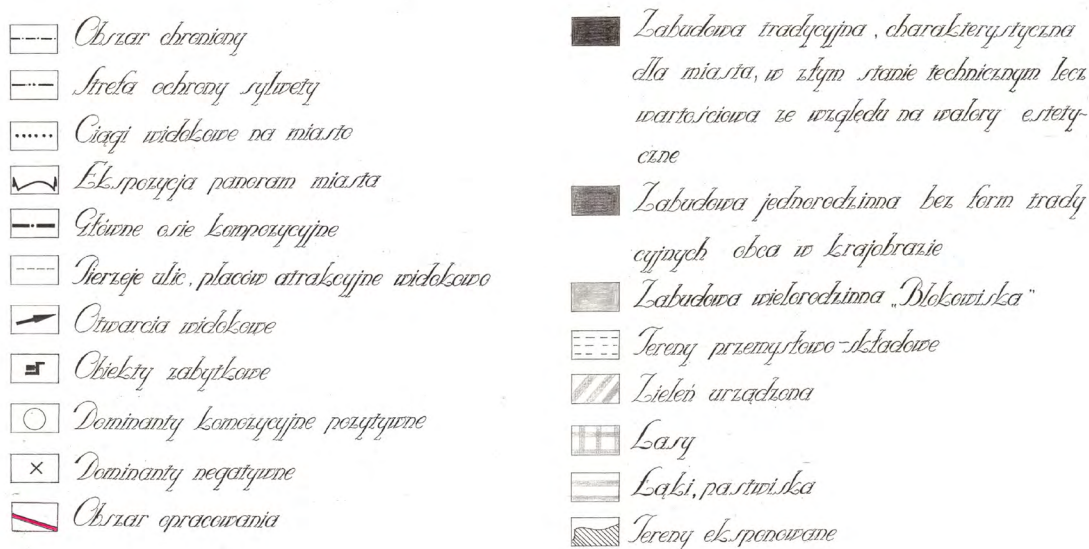 Obszar chroniony
Strefa ochrony sylwety
Ciągi widokowe na miasto
Ekspozycja panoram miasta
Główne osie kompozycyjne
Pierzeje ulic, placów atrakcyjne widokowo
Otwarcia widokowe
Obiekty zabytkowe
Dominanty komozycyjne pozytywne
Dominanty negatywne
Obszar opracowania
Zabudowa tradycyjna, charakterystyczna
dla miasta, w złym stanie technicznym lecz
wartościowa ze względu na walory estety-
czne
Zabudowa jednorodzinna bez form trady
cyjnych obca w krajobrazie
Zabudowa wielorodzinna „Blokowiska"
Tereny przemysłowo-składowe
Zieleń urządzona
Lasy
Łąki, pastwiska
Tereny eksponowane